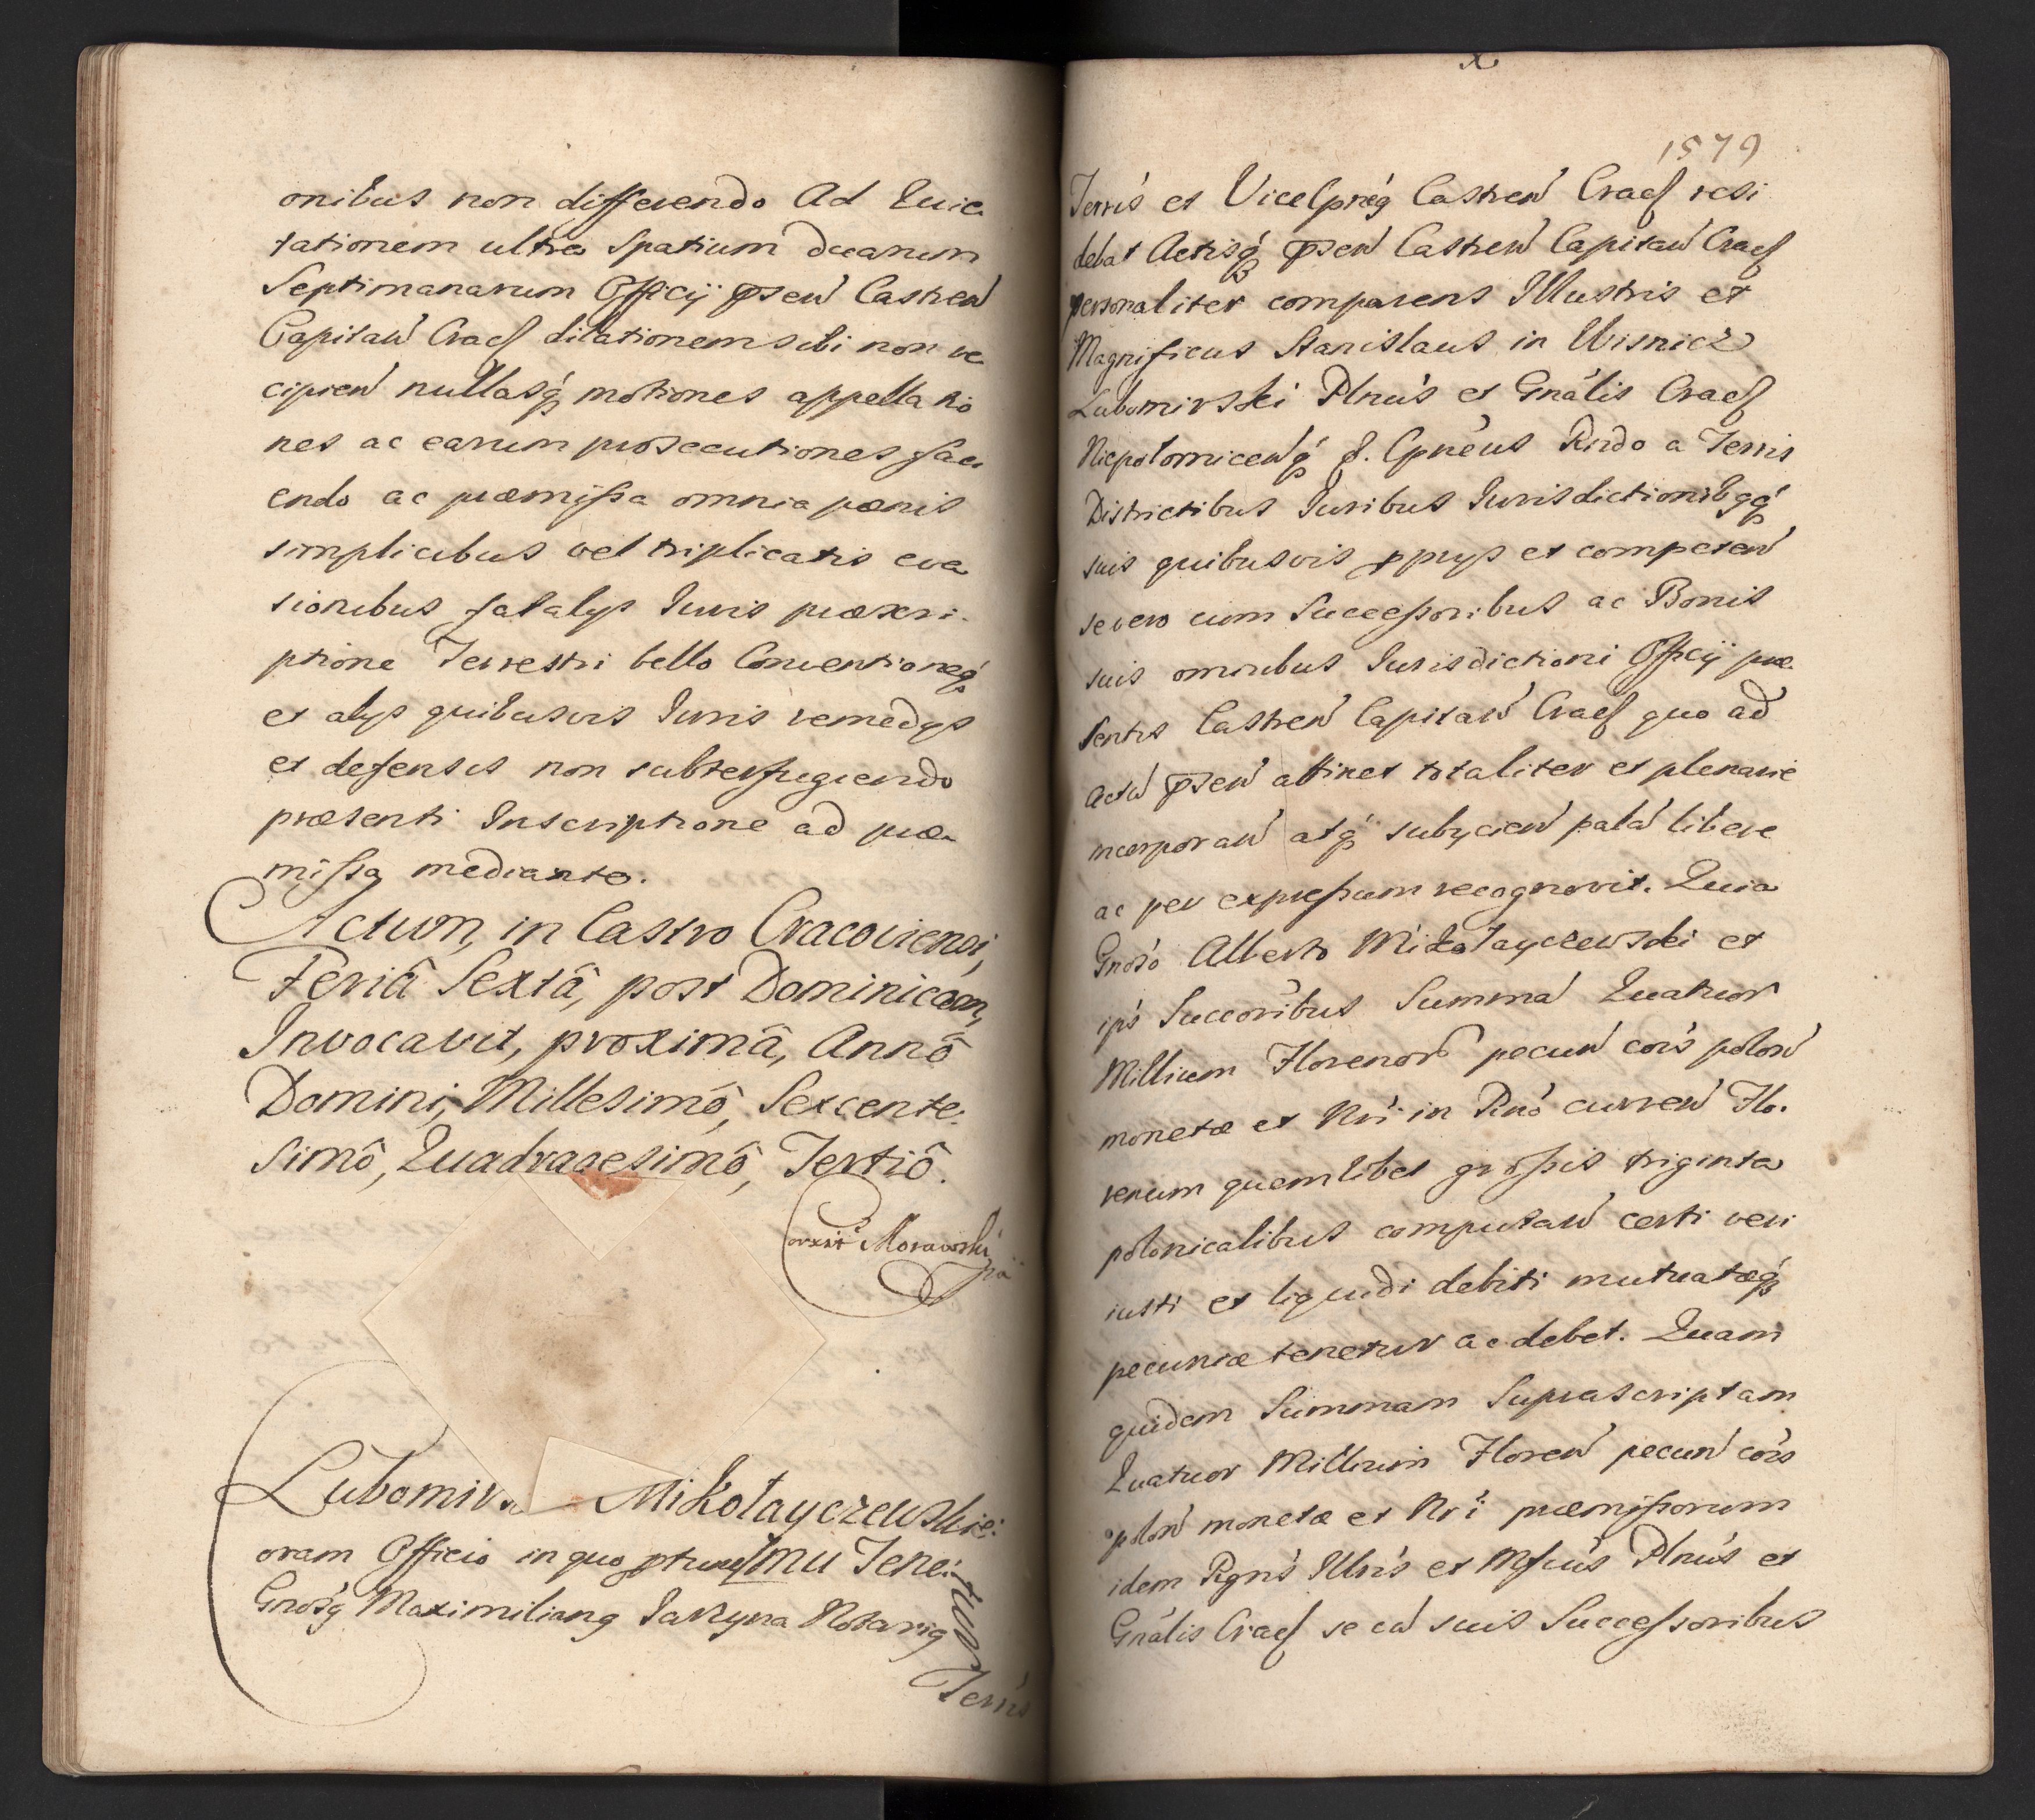 onibus non differendo Ad Euic
tationem ultra Spatium duarum
Septimanarum Officij pñsen̄ Castren̄
Capitan̄ Crac̄ dilationem sibi non re
cipien̄ nullasq́ motiones appellatio
nes ac earum prosecutiones faci
endo ac præmissa omnia pænis
simplicibus vel triplicatis eva
sionibus fatalijs Iuris præscri-
ptione Terrestri bello Conventioneq́
et alijs quibusvis Iuris remedijs
et defensis non subterfugiendo
præsenti Inscriptione ad præ
missa mediante.
Actum, in Castro Cracoviensi,
Feriâ Sextâ, post Dominicam,
Invocavit, proximâ, Annô
Domini, Millesimô, Sexcente:
simô, Quadragesimô, Tertiô.
Morawski
Lubomirs Mikołayczewskie:
oram Officio in quo mu Tene:
tur
Gnōsq Maximilianq Notariq
Terrīs
1579
Terrís et Vice Cpnéq Castren̄ Crac̄ resi
debat Actisq́ pñsen̄ Castren̄ Capitan̄ Crac̄
personaliter comparens Illustris et
Magnificus Stanislaus in Wisnicz
Lubomirski Plnús et Gnális Crac̄
Niepolomicen̄q́ &. Cpnéus Rndo a Terris
Districtibus Iuribus Iurisdictionibqq́
suis quibusvis pprijs et competen̄
se vero cum Successoribus ac Bonis
suis omnibus Iurisdictioni Officij præ
sentis Castren̄ Capitan̄ Crac̄ quo ad
Actū pñsen̄ attinet totaliter et plenarie
incorporan̄ atq́ subijcien̄ palā libere
ac per expressum recognovit. Quia
Gnośo Alberto Mikołayczewski et
ips̄ Succoribus Summā Quatuor
Millium Florenor̄ pecun̄ cōis polon̄
monetæ et Nri in Rno curren̄ Flo.
renum quemlibet grossis triginta
polonicalibus computan̄ certi veri
iusti et liquidi debiti mutuatæq́
pecuniæ tenetur ac debet. Quam
quidem Summam Suprascriptam
Quatuor Millium Floren̄ pecun̄ cōis
polon̄ monetæ et Nri præmissorum
idem Rgns̄ Illrís et Mfcús Plnús et
Gnális Crac̄ se cū suis Successoribus